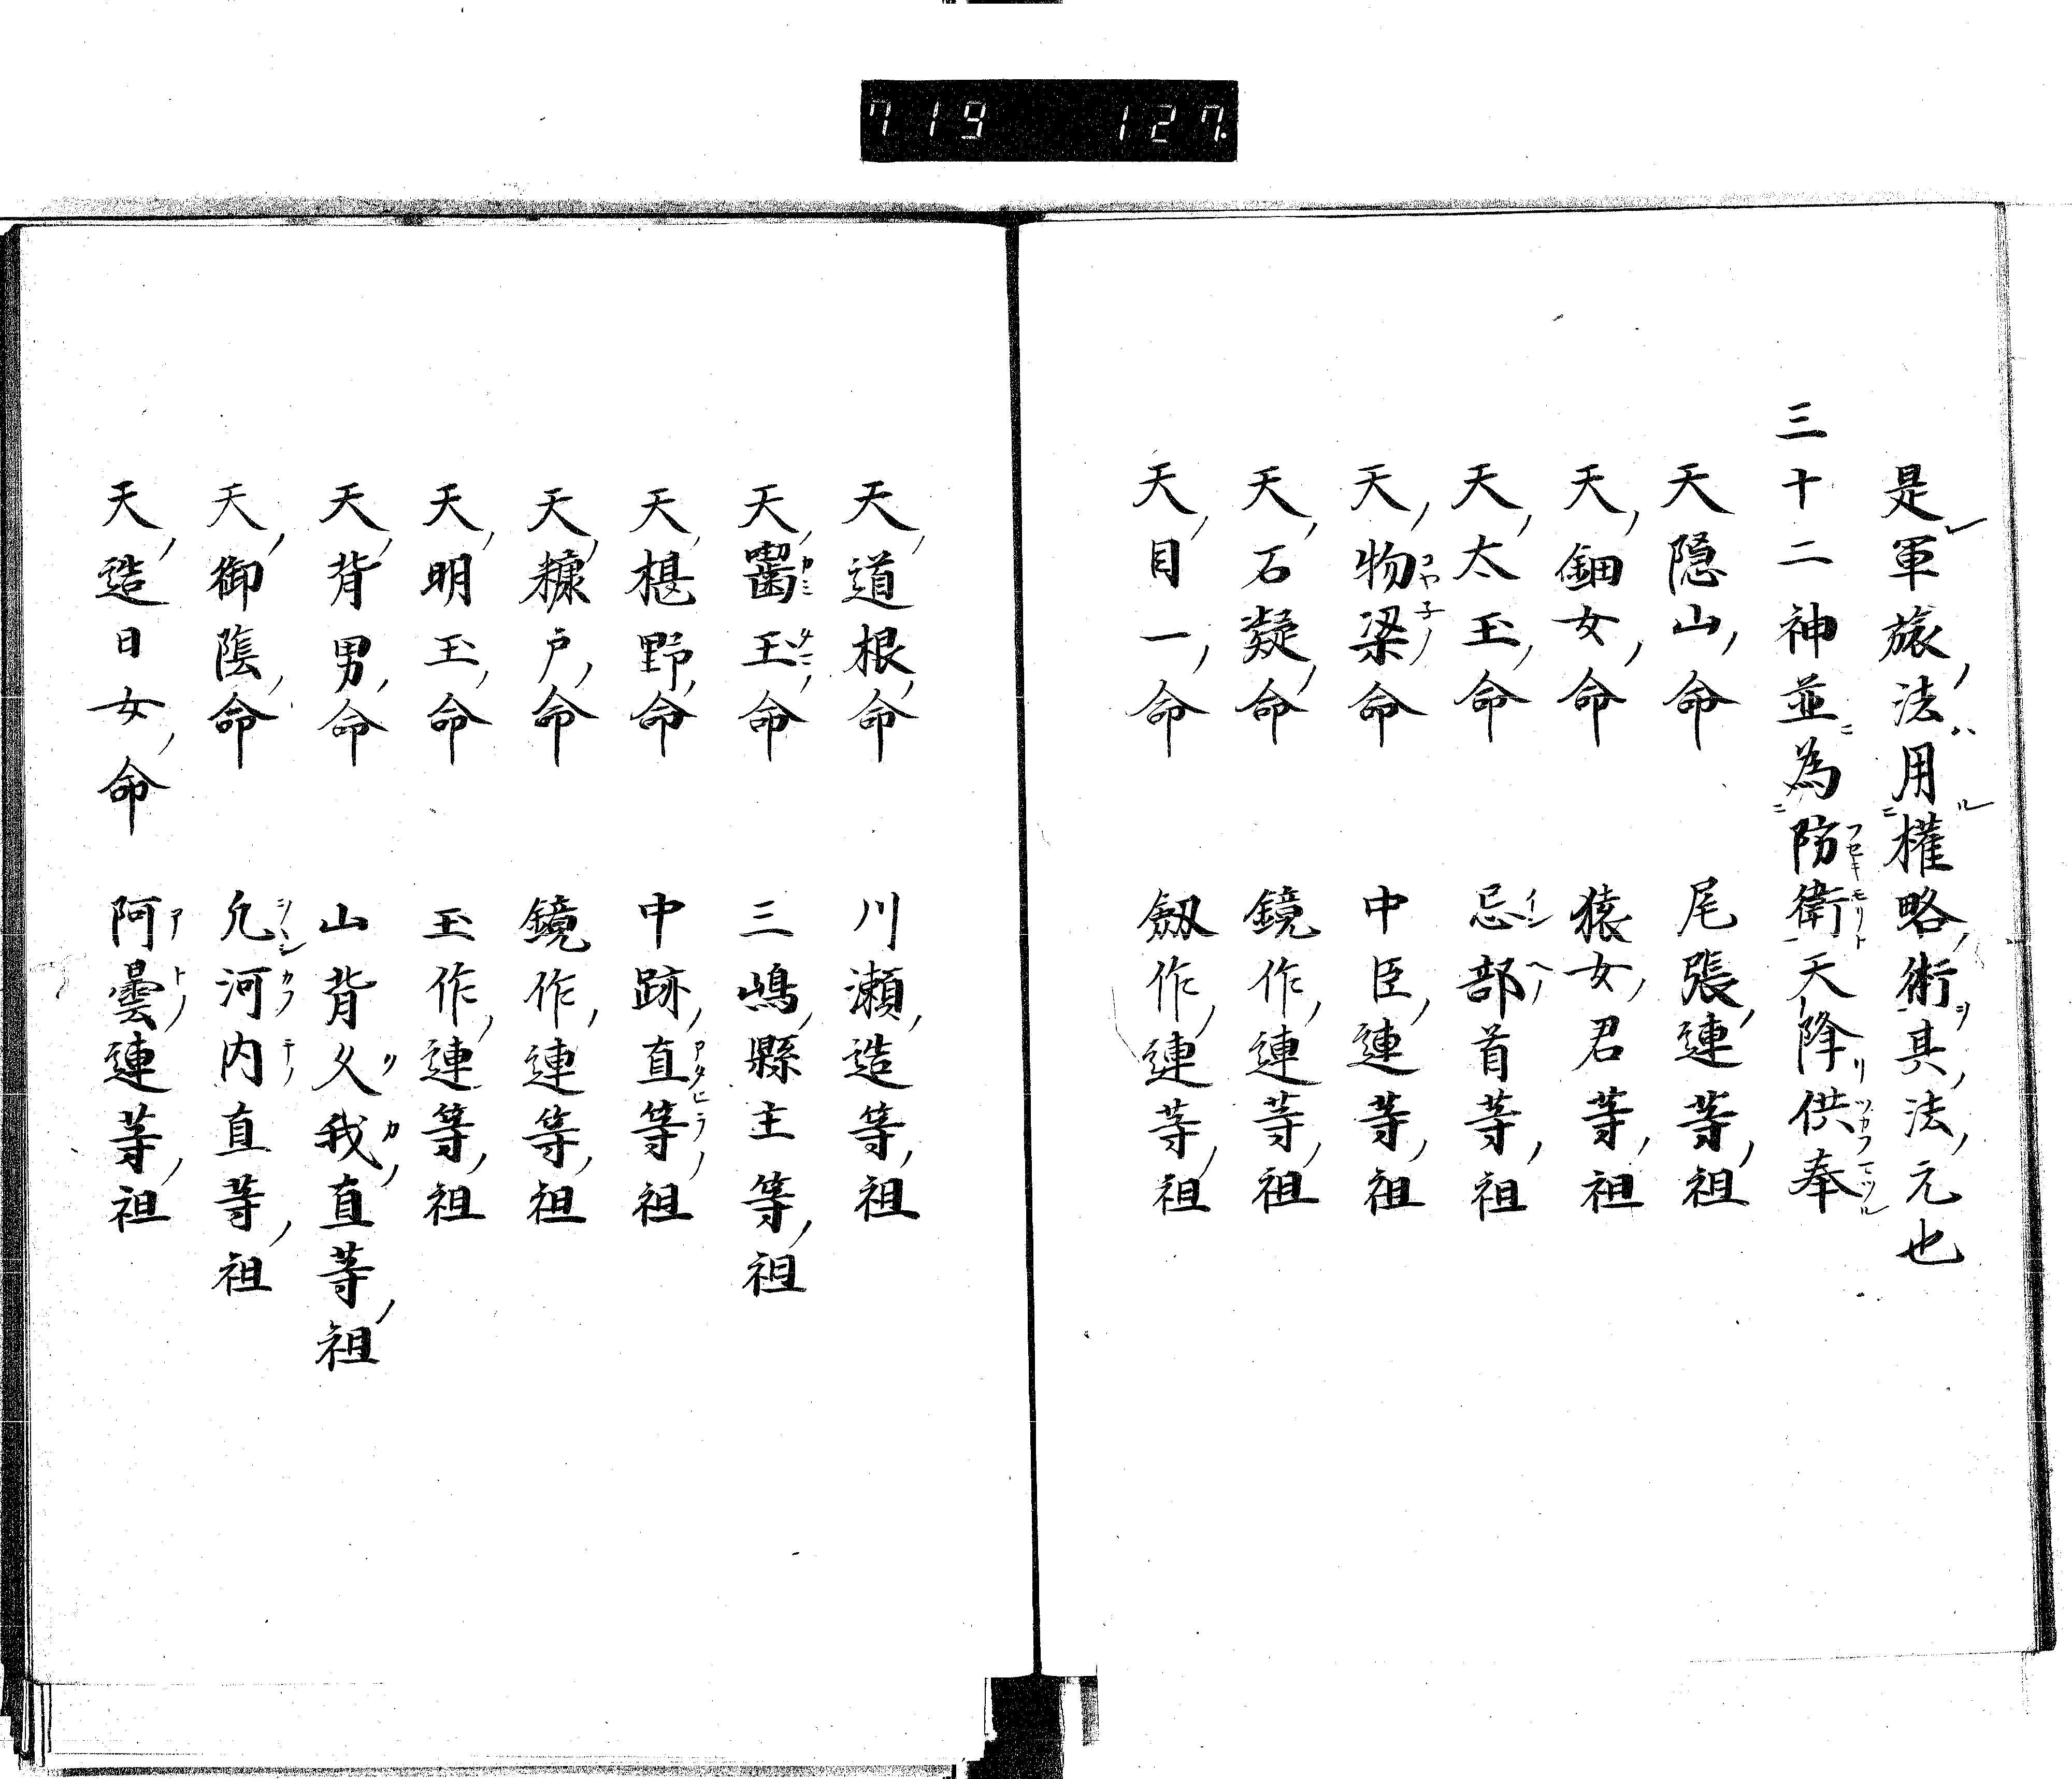 719 127.
是軍旅法用權略術其法元也
三十二神並為防衛天降供奉
天隠山命 尾張連等祖
天鈿女命 猿女君等祖
天太玉命 忌部首等祖
天物梁命 中臣連等祖
天石凝命 鏡作連等祖
天目一命 剱作連等祖
天道根命 川瀬造等祖
天嚙玉命 三嶋縣主等祖
天椹野命 中跡直等祖
天糠戸命 鏡作連等祖
天明玉命 玉作連等祖
天背男命 山背久我直等祖
天御蔭命 凢河内直等祖
天造日女命 阿曇連等祖